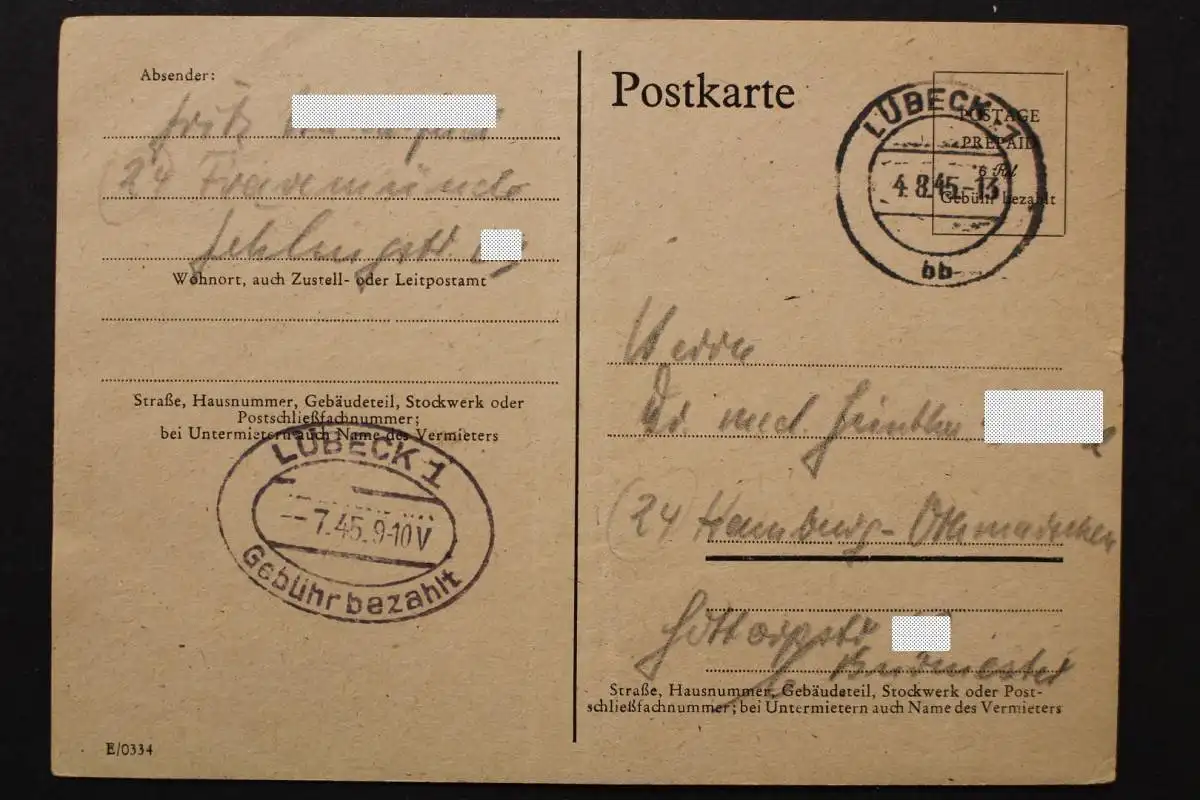 Absender:
Fritz
(24) Travemünde
Wohnort, auch Zustell- oder Leitpostamt
Straße, Hausnummer, Gebäudeteil, Stockwerk oder
Postschließfachnummer;
bei Untermietern auch Name des Vermieters
LÜBECK 1
7.45. 9-10 V
Gebühr bezahlt
E/0334
Postkarte
LÜBECK 1
4.8.45.-13
bb
POSTAGE
PREPAID
6 Rpf
Gebühr bezahlt
Herrn
Dr. med.
(24) Hamburg-Othmarschen
Straße, Hausnummer, Gebäudeteil, Stockwerk oder Post-
schließfachnummer; bei Untermietern auch Name des Vermieters